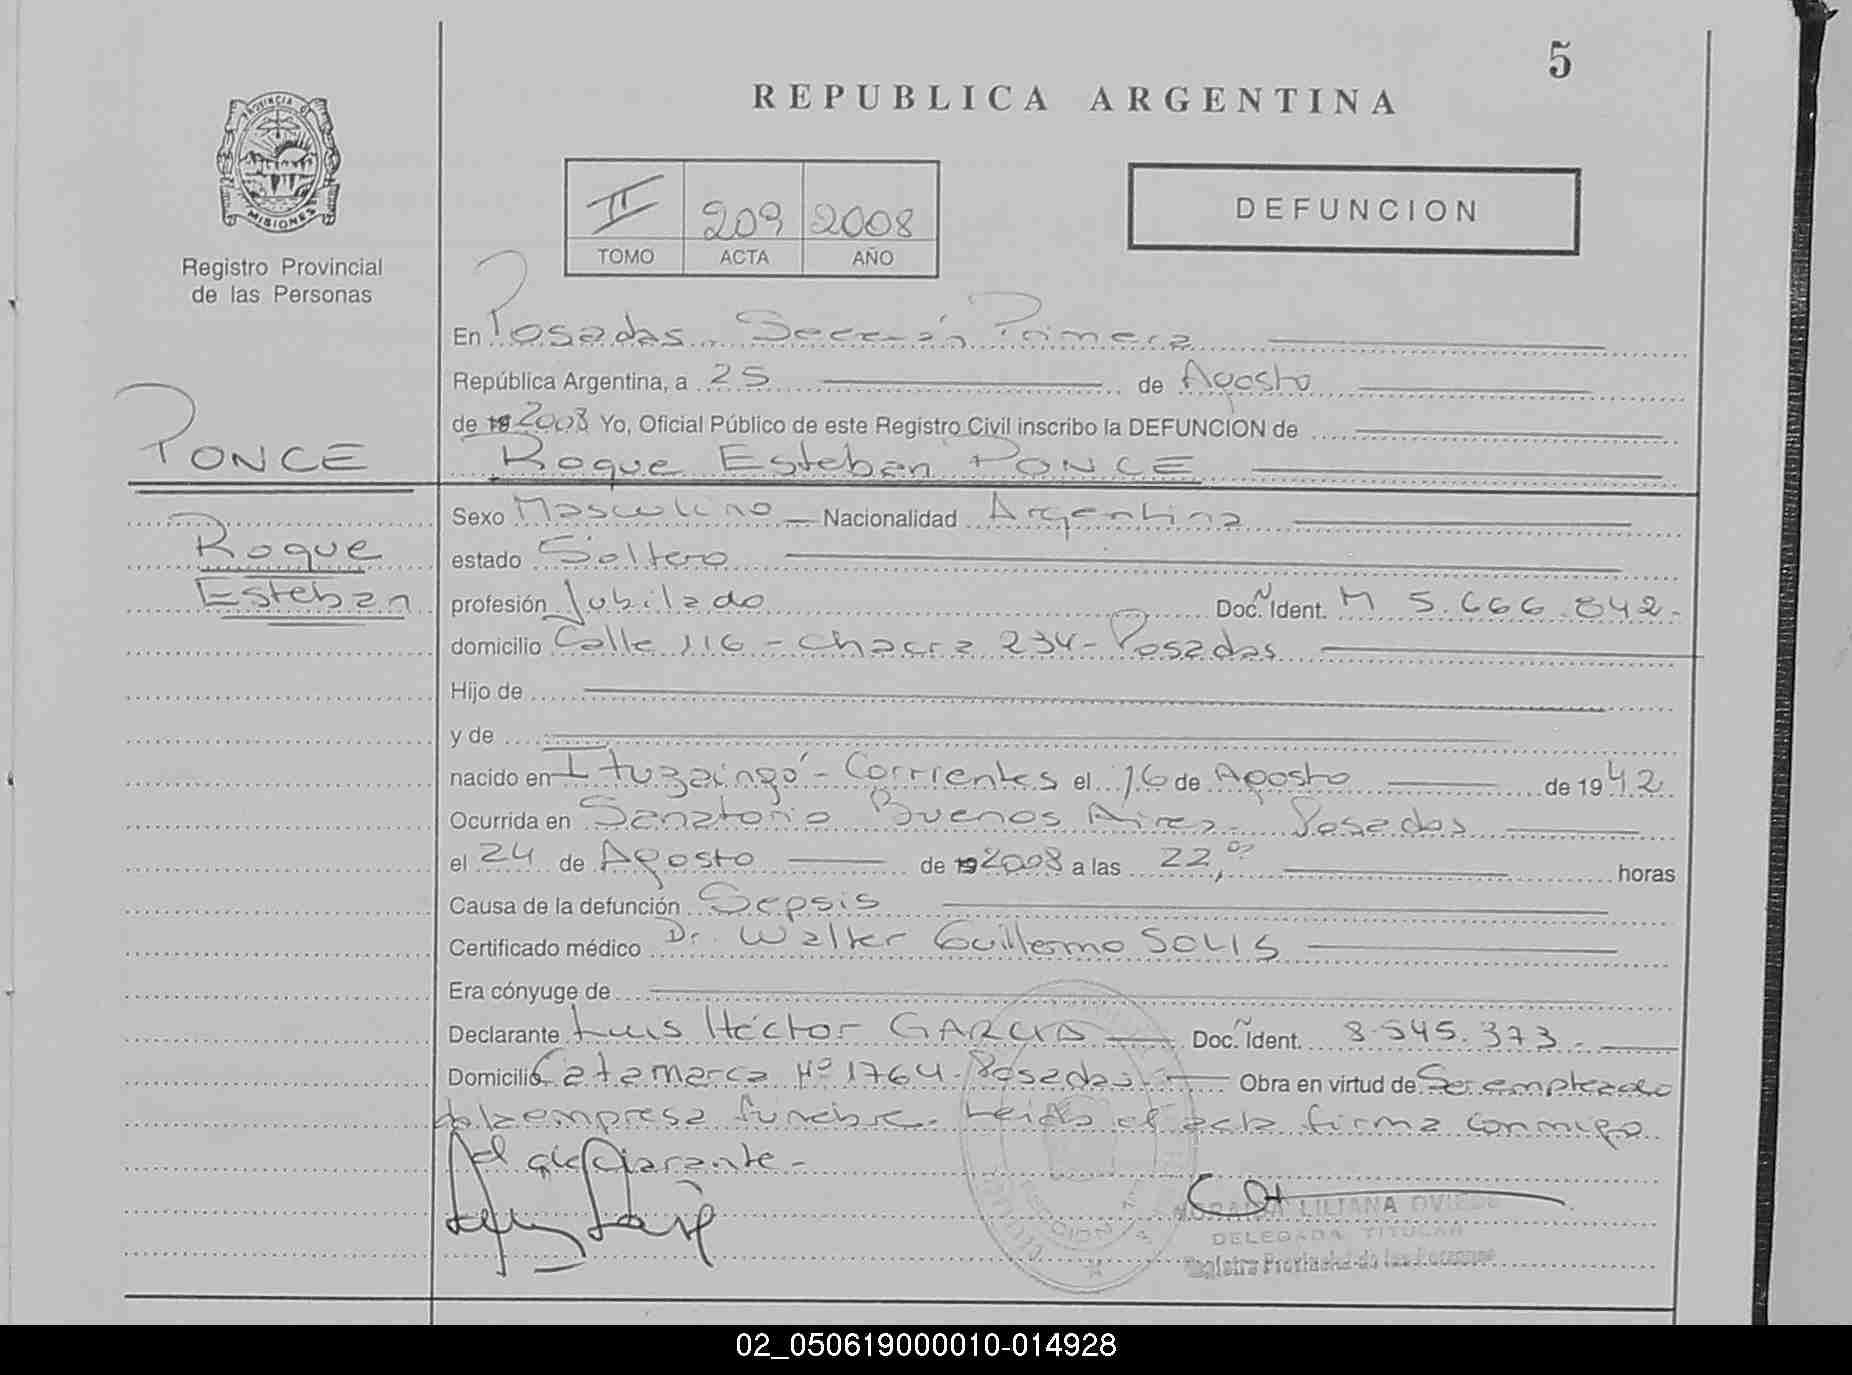 5
REPUBLICA ARGENTINA
PROVINCIA DE
MISIONES
Registro Provincial
de las Personas
II 209 2008
TOMO ACTA AÑO
DEFUNCION
En Posadas, Sección Primera
República Argentina, a 25 de Agosto
de 19 2008 Yo, Oficial Público de este Registro Civil inscribo la DEFUNCION de
PONCE
Roque Esteban PONCE
Roque
Esteban
Sexo Masculino Nacionalidad Argentina
estado Soltero
profesión Jubilado Doc. Ident. M 5.666.842.
domicilio Calle 116 - Chacra 234 - Posadas
Hijo de
y de
nacido en Ituzaingó - Corrientes el 16 de Agosto de 1942
Ocurrida en Sanatorio Buenos Aires - Posadas
el 24 de Agosto de 19 2008 a las 22,00 horas
Causa de la defunción Sepsis
Certificado médico Dr. Walter Guillermo SOLIS
Era cónyuge de
Declarante Luis Héctor GARCIA Doc. Ident. 8.545.373.
Domicilio Catamarca Nº 1764 - Posadas Obra en virtud de Ser empleado
de la empresa fúnebre. Leida el acta firma conmigo
el declarante -
LILIANA OVIEDO
DELEGADA TITULAR
Registro Provincial de las Personas
02_050619000010-014928